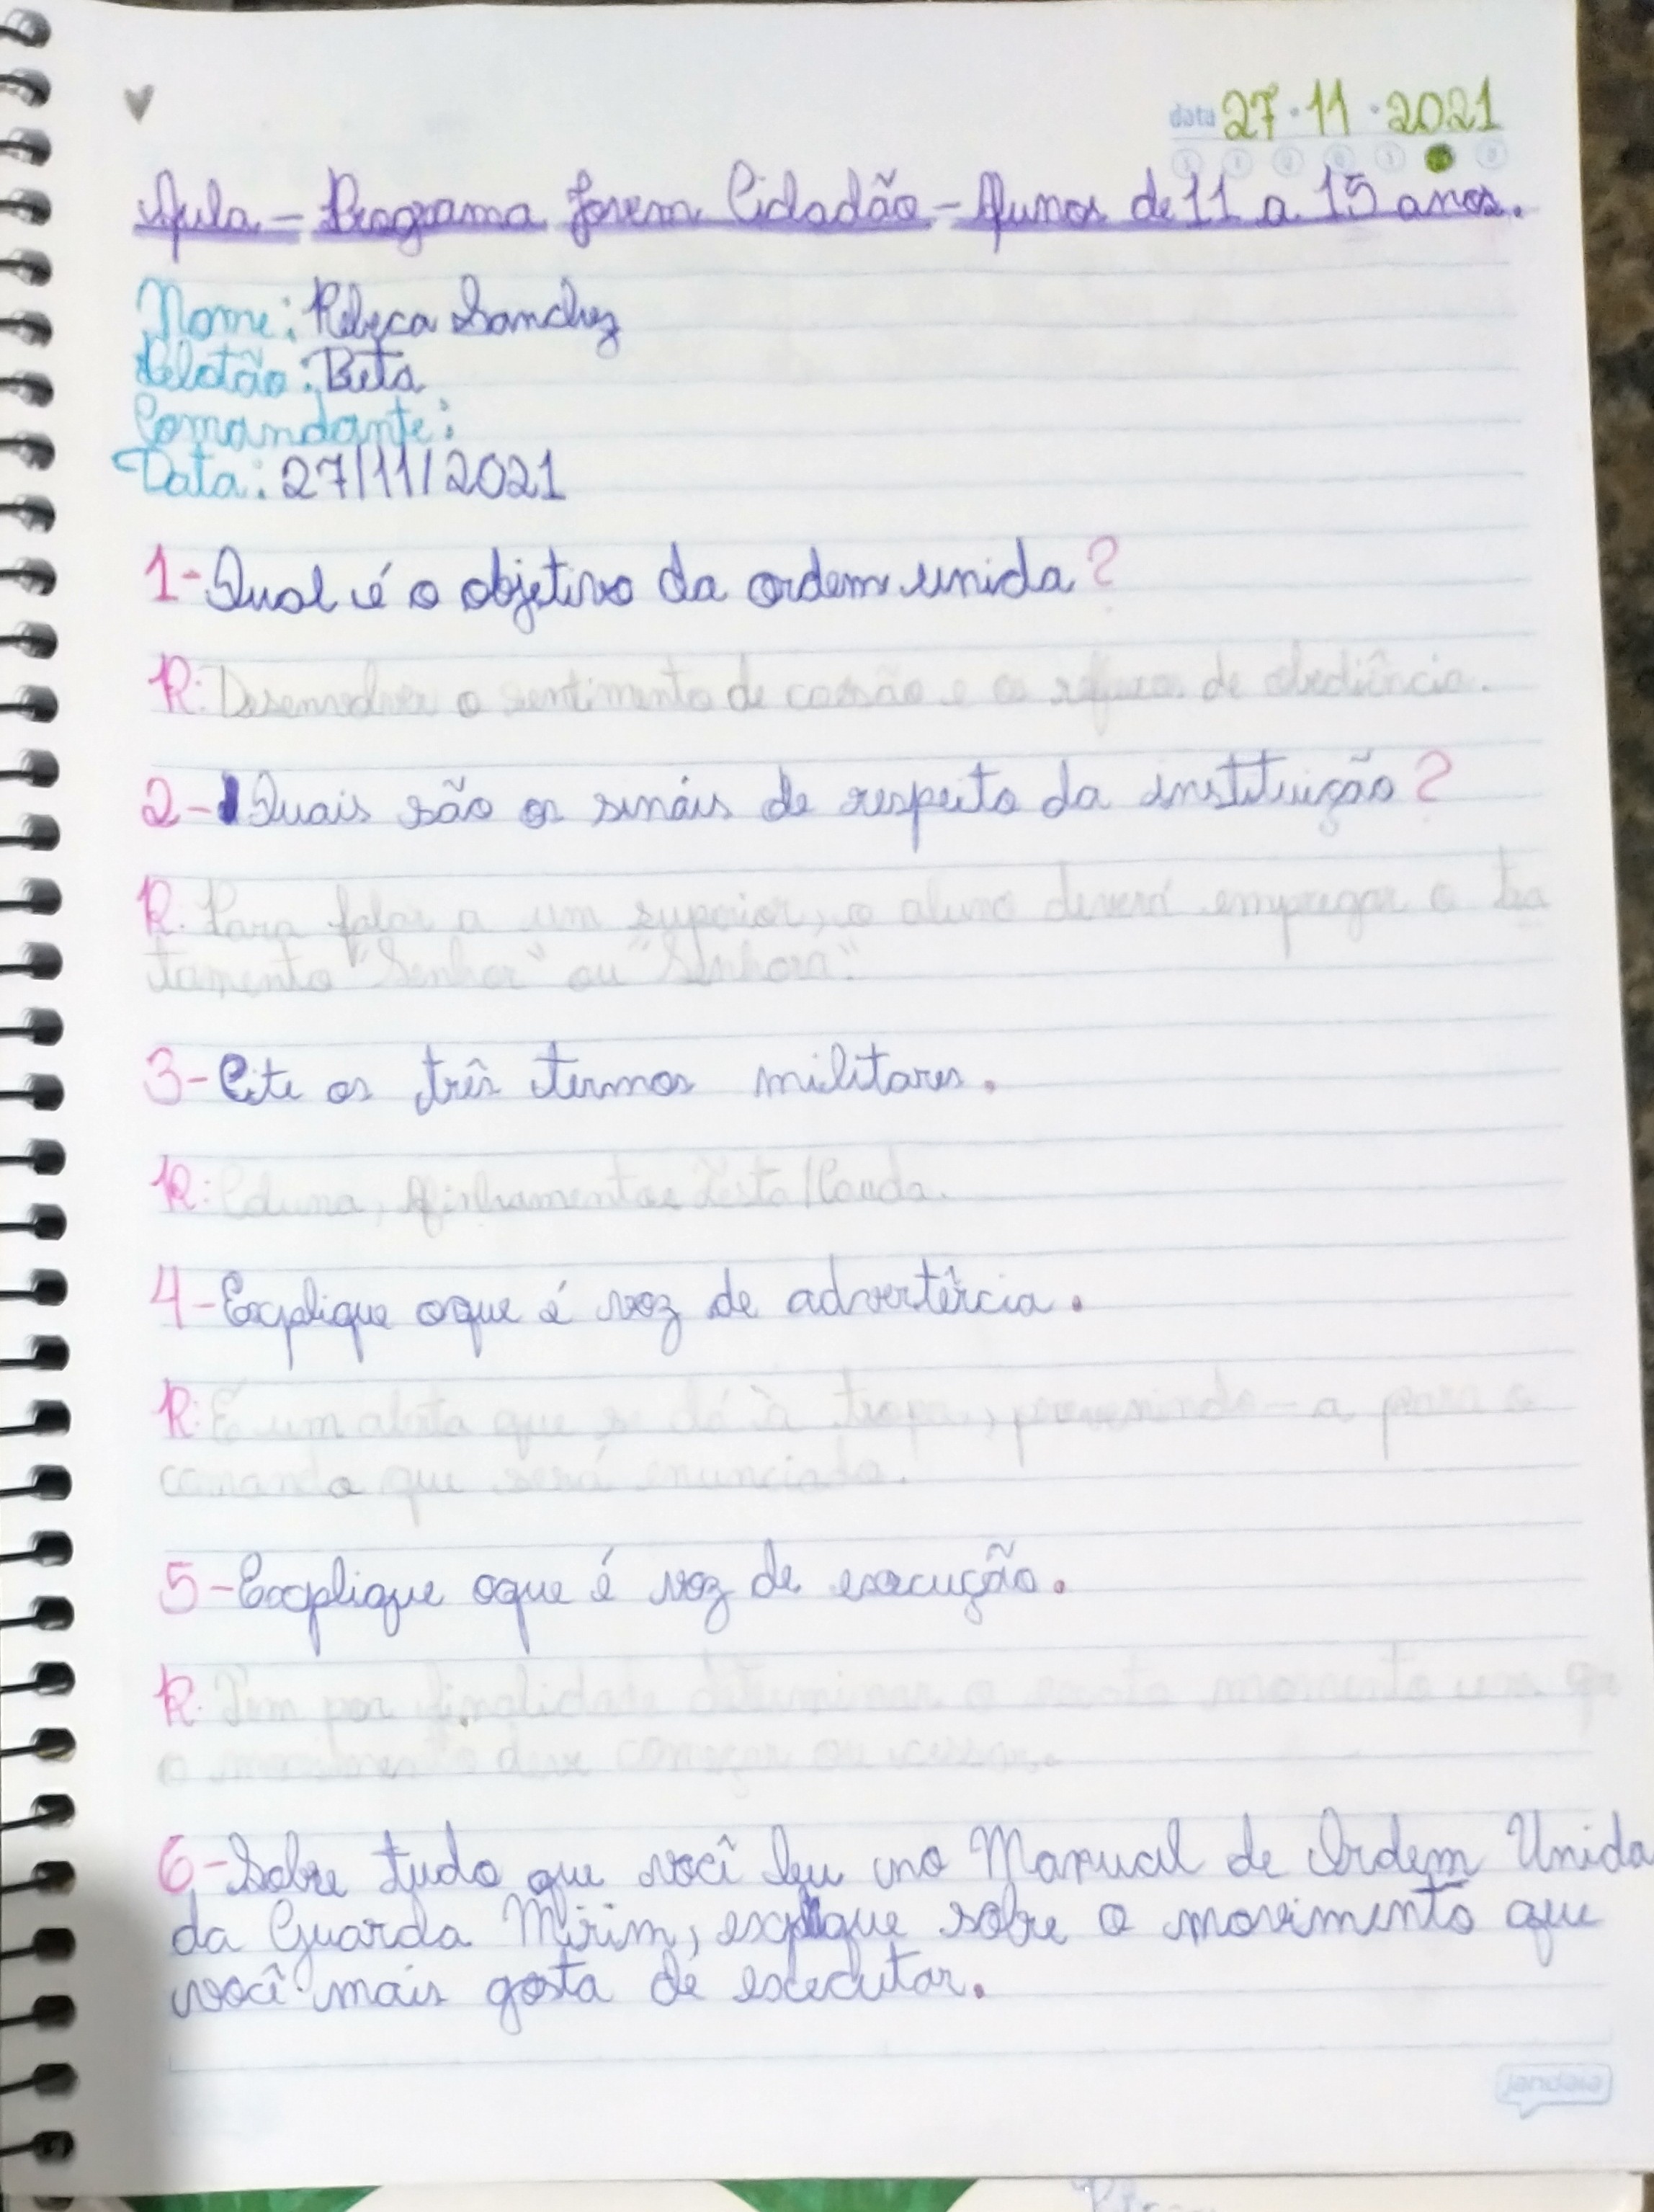 data 27.11.2021
Aula - Programa Jovem Cidadão - Alunos de 11 a 15 anos.
Nome: Rebeca Sanchez
Pelotão: Beta
Comandante:
Data: 27/11/2021
1- Qual é o objetivo da ordem unida?
R: Desenvolver o sentimento de coesão e os reflexos de obediência.
2- Quais são os sinais de respeito da instituição?
R: Para falar a um superior, o aluno deverá empregar o tra
tamento "Senhor" ou "Senhora".
3- Cite os três termos militares.
R: Coluna, Alinhamento e Testa/Cauda.
4- Explique oque é voz de advertência.
R: É um alerta que se dá à tropa, prevenindo-a para o
comando que será enunciado.
5- Explique oque é voz de execução.
R: Tem por finalidade determinar o exato momento em q
o movimento deve começar ou cessar.
6- Sobre tudo que você leu no Manual de Ordem Unida
da Guarda Mirim, explique sobre o movimento que
você mais gosta de executar.
jandaia